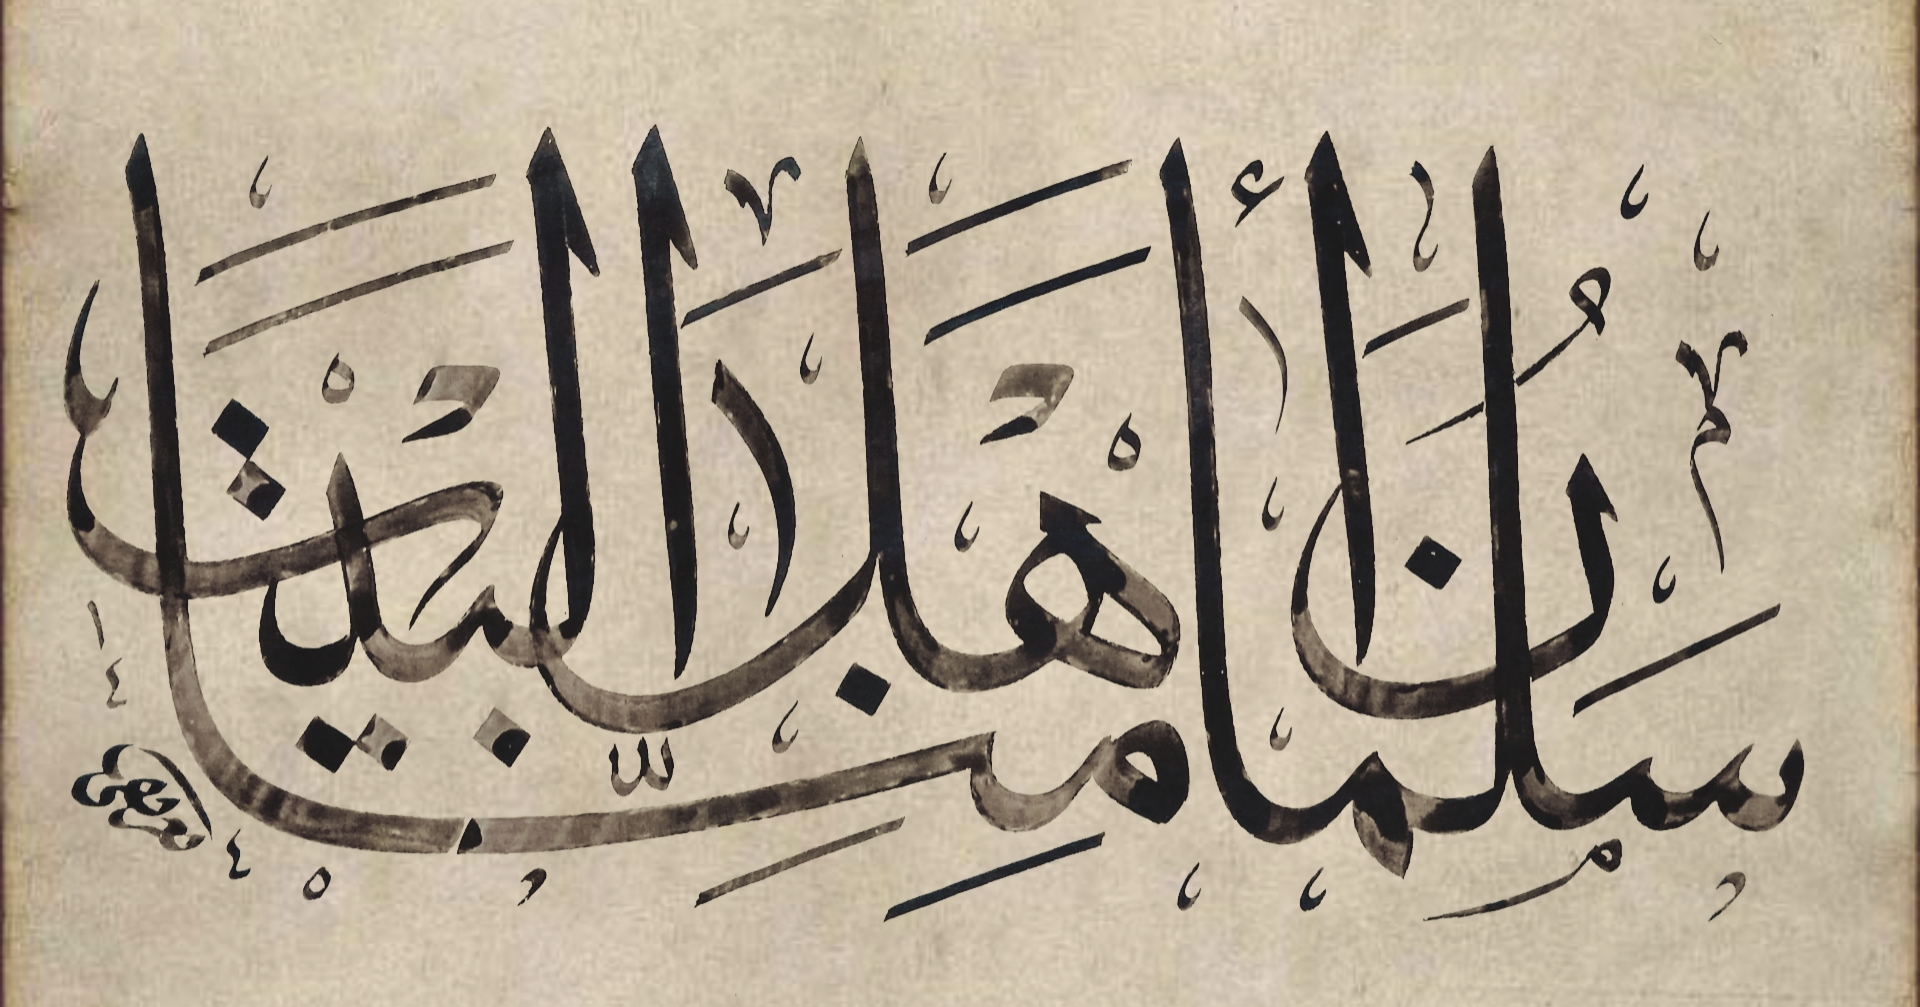 سَلْمَانُ مِنَّا أَهْلَ الْبَيْتِ